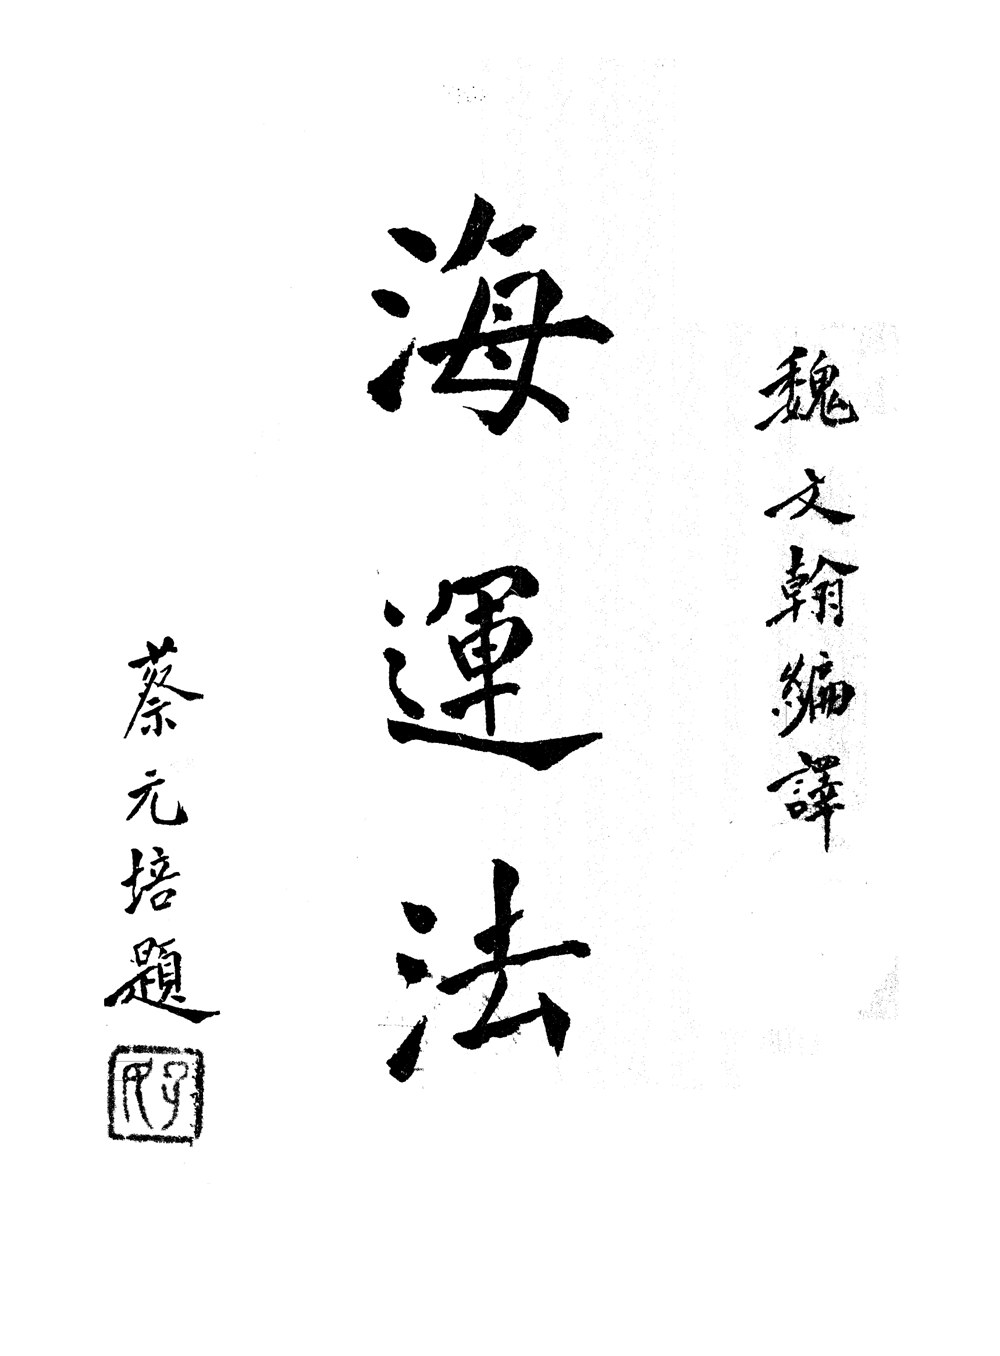 魏文翰編譯
海運法
蔡元培題
孑民